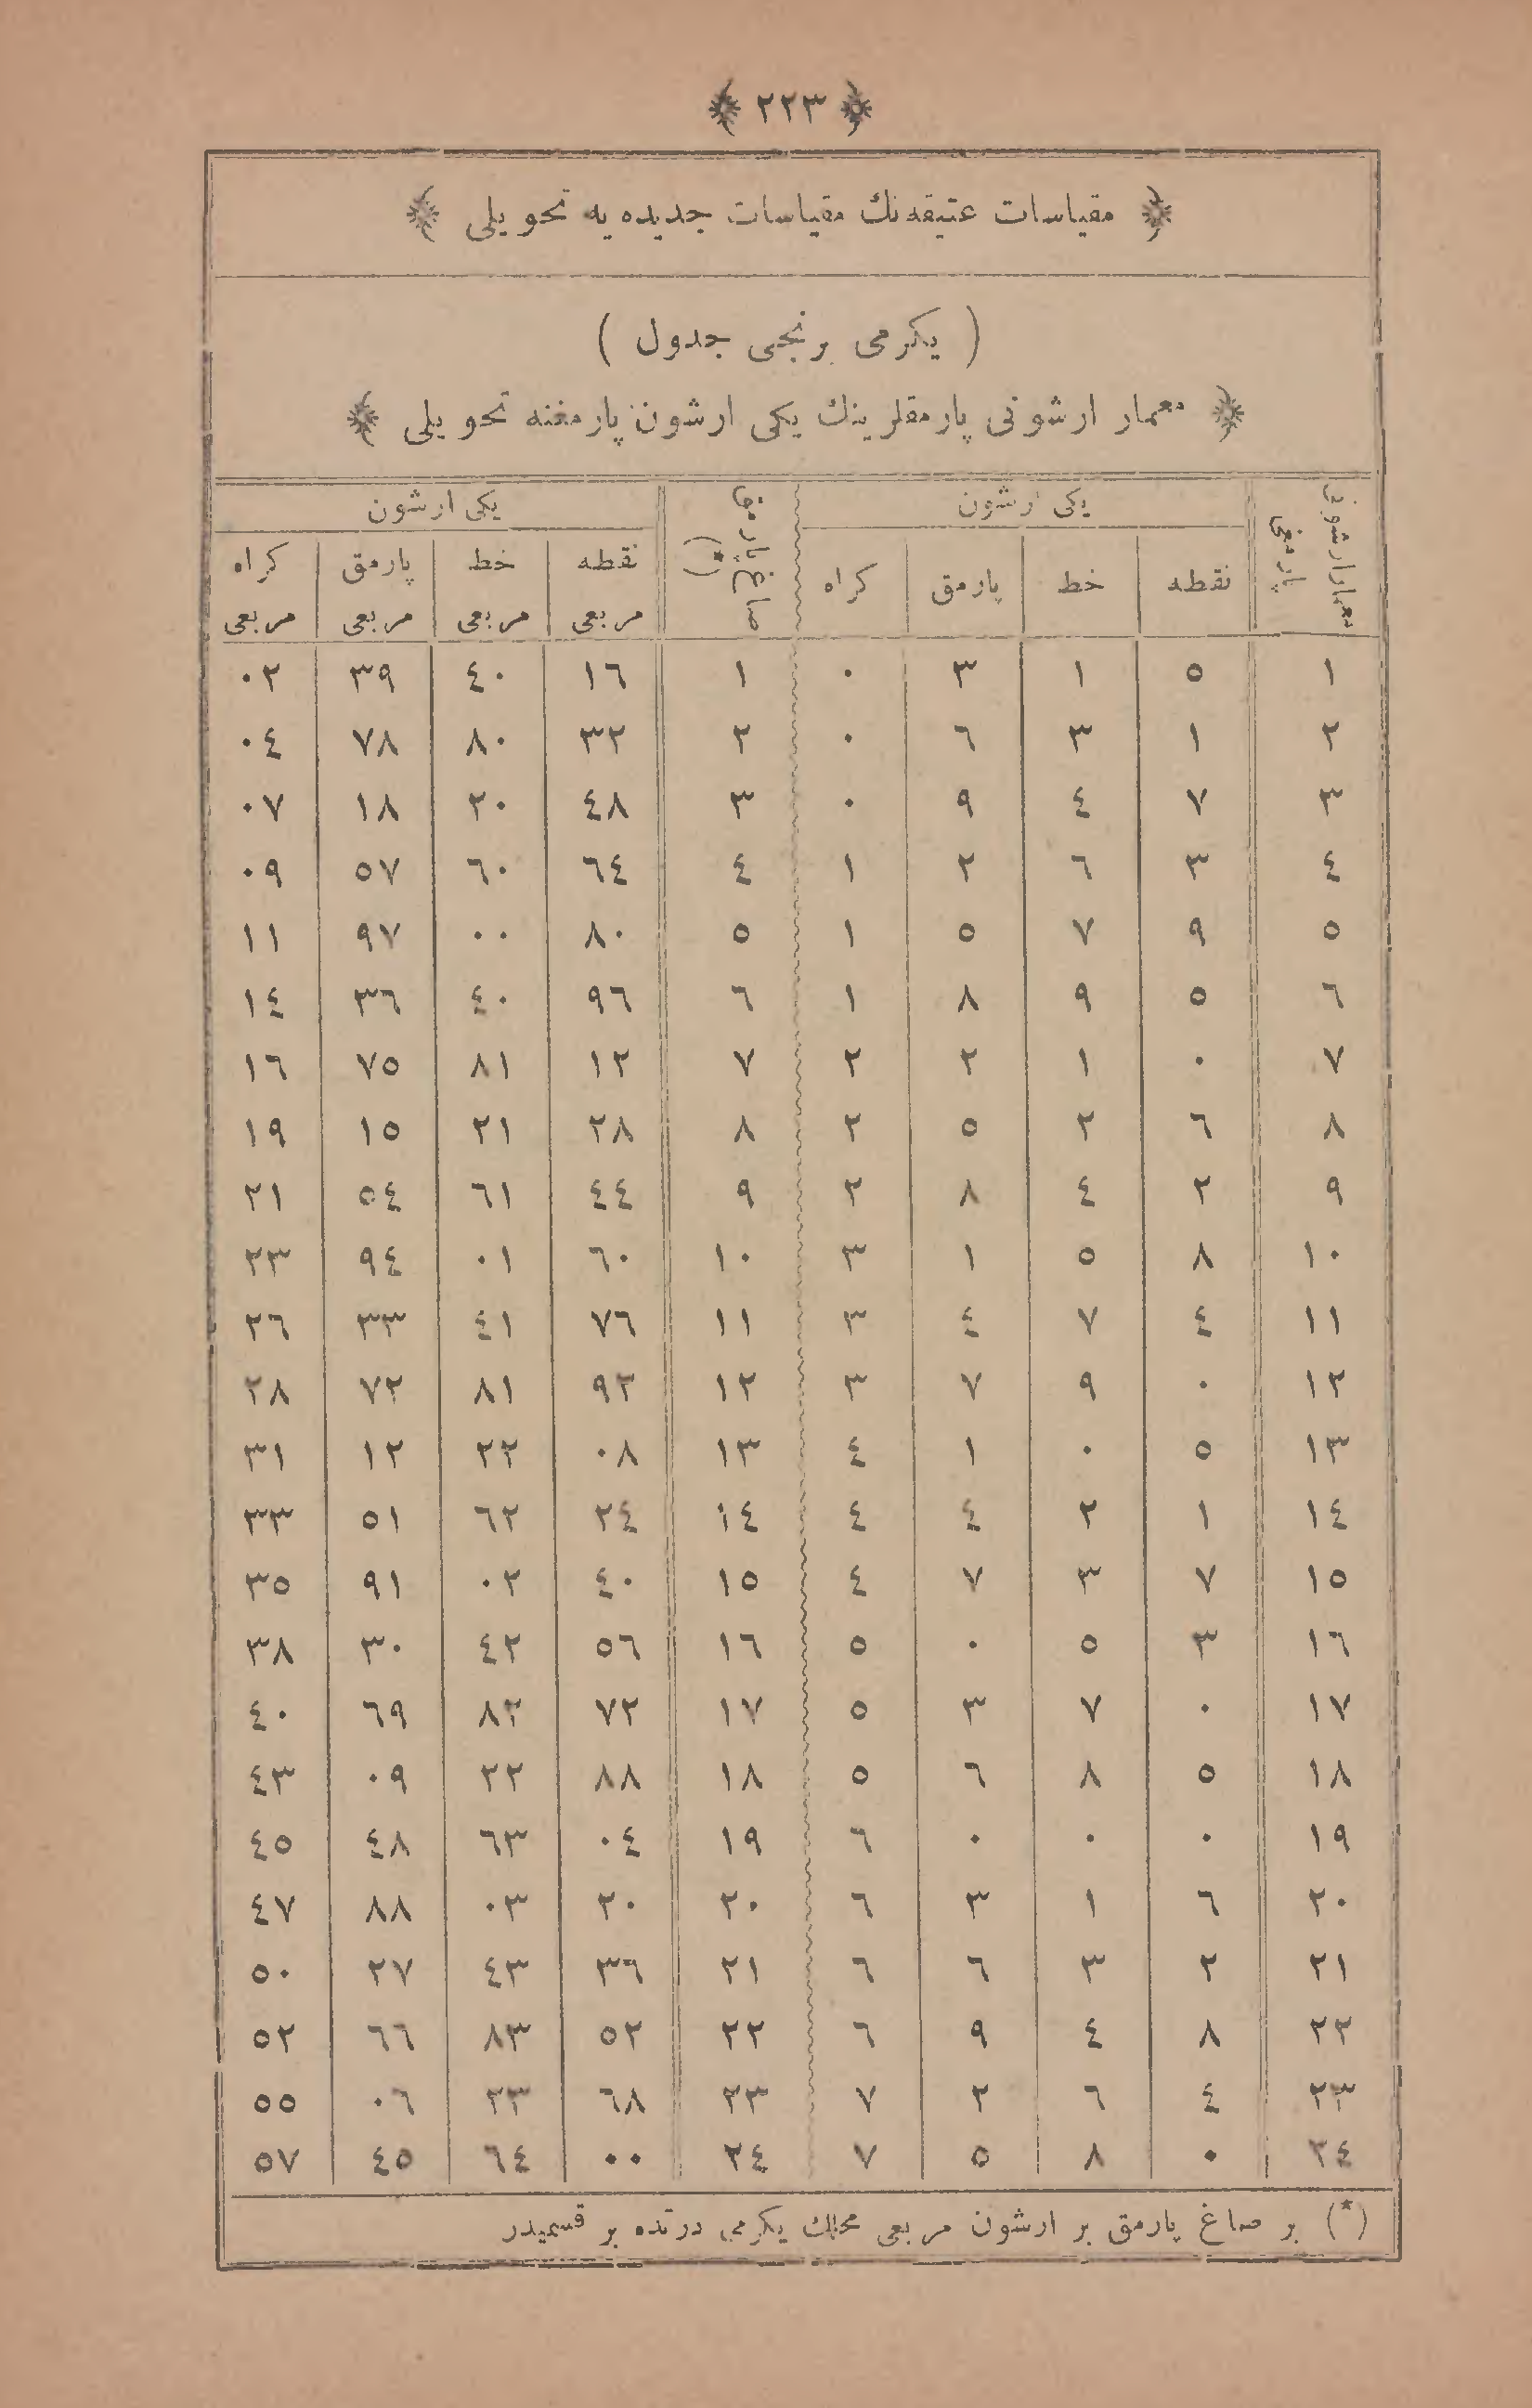 ﴿ ٢٢٣ ﴾
﴿ مقياسات عتيقه‌نك مقياسات جديده يه تحويلى ﴾
( يكرمى برنجى جدول )
﴿ معمار ارشونى پارمقلرينك يكى ارشون پارمغنه تحويلى ﴾
معمار ارشونى پارمغى | يكى ارشون | صاغ پارمق (*) | يكى ارشون
نقطه | خط | پارمق | كراه | نقطه مربعى | خط مربعى | پارمق مربعى | كراه مربعى
١ ٥ ١ ٣ ٠ ١ ١٦ ٤٠ ٣٩ ٠٢
٢ ١ ٣ ٦ ٠ ٢ ٣٢ ٨٠ ٧٨ ٠٤
٣ ٧ ٤ ٩ ٠ ٣ ٤٨ ٢٠ ١٨ ٠٧
٤ ٣ ٦ ٢ ١ ٤ ٦٤ ٦٠ ٥٧ ٠٩
٥ ٩ ٧ ٥ ١ ٥ ٨٠ ٠٠ ٩٧ ١١
٦ ٥ ٩ ٨ ١ ٦ ٩٦ ٤٠ ٣٦ ١٤
٧ ٠ ١ ٢ ٢ ٧ ١٢ ٨١ ٧٥ ١٦
٨ ٦ ٢ ٥ ٢ ٨ ٢٨ ٢١ ١٥ ١٩
٩ ٢ ٤ ٨ ٢ ٩ ٤٤ ٦١ ٥٤ ٢١
١٠ ٨ ٥ ١ ٣ ١٠ ٦٠ ٠١ ٩٤ ٢٣
١١ ٤ ٧ ٤ ٣ ١١ ٧٦ ٤١ ٣٣ ٢٦
١٢ ٠ ٩ ٧ ٣ ١٢ ٩٢ ٨١ ٧٢ ٢٨
١٣ ٥ ٠ ١ ٤ ١٣ ٠٨ ٢٢ ١٢ ٣١
١٤ ١ ٢ ٤ ٤ ١٤ ٢٤ ٦٢ ٥١ ٣٣
١٥ ٧ ٣ ٧ ٤ ١٥ ٤٠ ٠٢ ٩١ ٣٥
١٦ ٣ ٥ ٠ ٥ ١٦ ٥٦ ٤٢ ٣٠ ٣٨
١٧ ٠ ٧ ٣ ٥ ١٧ ٧٢ ٨٢ ٦٩ ٤٠
١٨ ٥ ٨ ٦ ٥ ١٨ ٨٨ ٢٢ ٠٩ ٤٣
١٩ ٠ ٠ ٠ ٦ ١٩ ٠٤ ٦٣ ٤٨ ٤٥
٢٠ ٦ ١ ٣ ٦ ٢٠ ٢٠ ٠٣ ٨٨ ٤٧
٢١ ٢ ٣ ٦ ٦ ٢١ ٣٦ ٤٣ ٢٧ ٥٠
٢٢ ٨ ٤ ٩ ٦ ٢٢ ٥٢ ٨٣ ٦٦ ٥٢
٢٣ ٤ ٦ ٢ ٧ ٢٣ ٦٨ ٢٣ ٠٦ ٥٥
٢٤ ٠ ٨ ٥ ٧ ٢٤ ٠٠ ٦٤ ٤٥ ٥٧
(*) بر صاغ پارمق بر ارشون مربعى محلك يكرمى درتده بر قسميدر